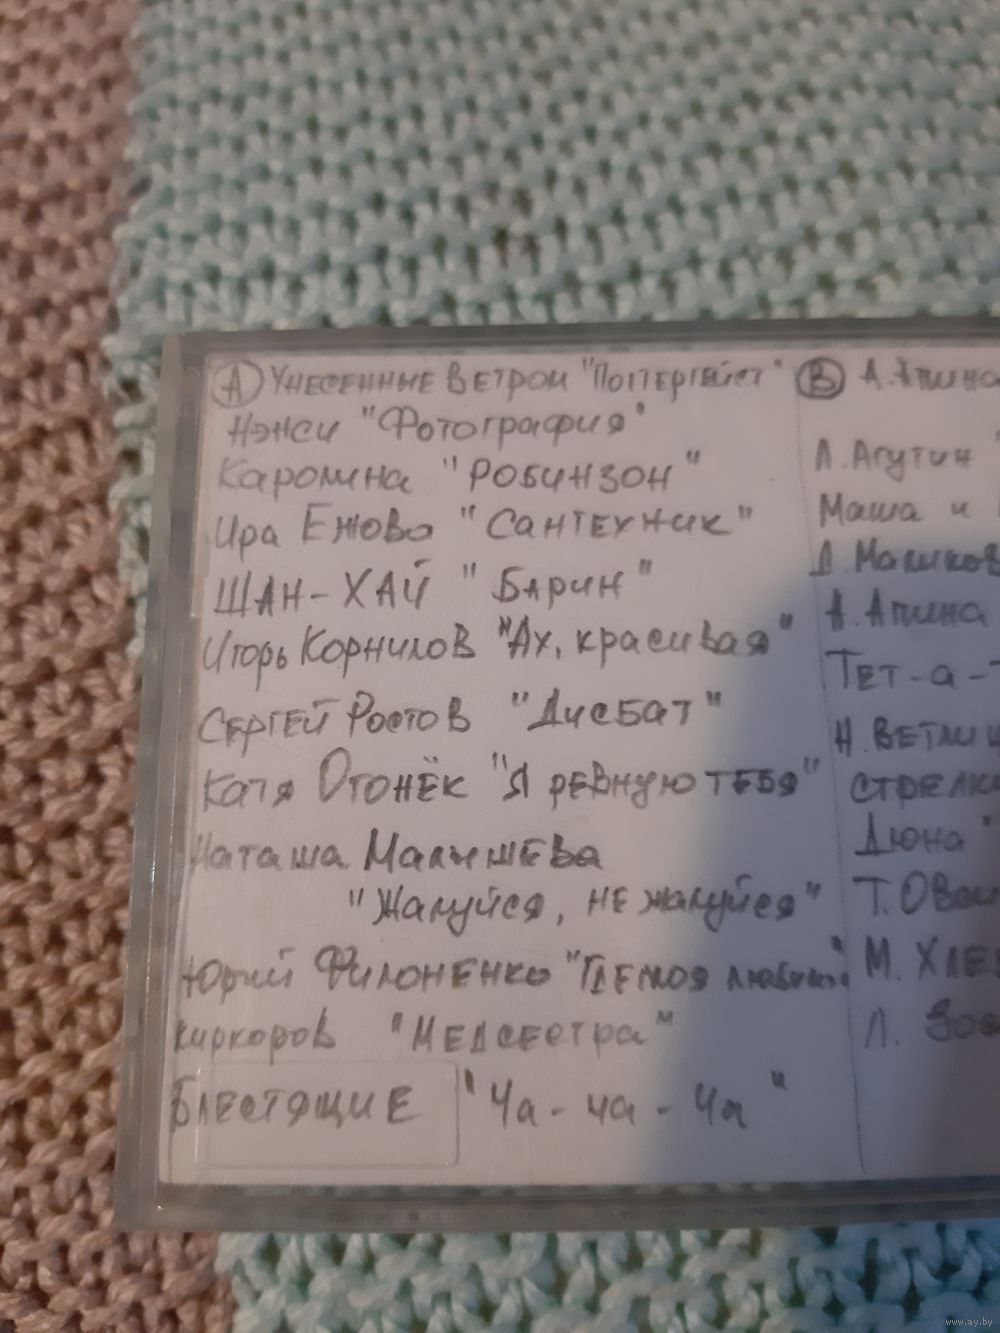 А Унесенные Ветром "Полтергейст"
Нэнси "Фотография"
Каролина "РОБИНЗОН"
Ира Ежова "Сантехник"
ШАН-ХАЙ "Барин"
Игорь Корнилов "Ах, красивая"
Сергей Ростов "Дисбат"
Катя Огонёк "Я ревную тебя"
Наташа Малышева
"Жалуйся, не жалуйся"
Юрий Филоненко "Где моя
Киркоров "Медсестра"
Блестящие "Ча-ча-ча"
В А. Апина
Л. Агутин
Маша и
Д. Маликов
А. Апина
Тет-а-
Н. Ветли
Стрелки
Дюна "
Т. Овси
М. Хле
Л.
www.ay.by